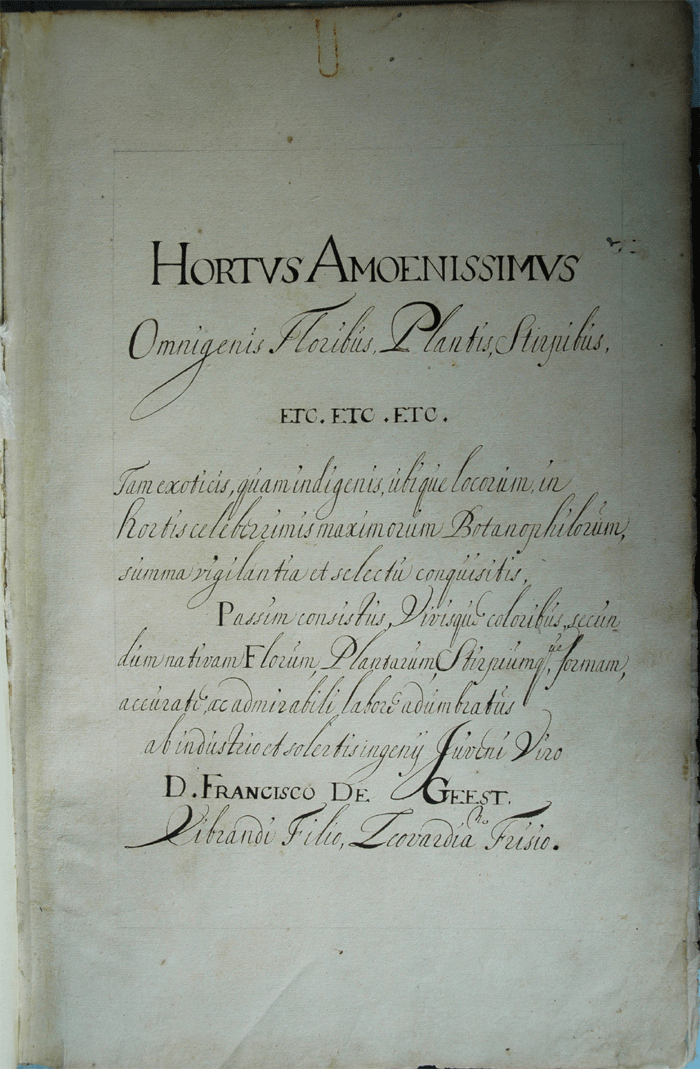 HORTVS AMOENISSIMVS
Omnigenis Floribus, Plantis, Stirpibus,
ETC. ETC. ETC.
Tam exoticis, quam indigenis, ubique locorum, in
hortis celeberrimis maximorum Botanophilorum,
summa vigilantia et selectu conquisitis,
Passim consitus, Vivisque coloribus, secun
dum nativam Florum, Plantarum, Stirpiumq,ue formam,
accurate, ac admirabili labore adumbratus
ab industrio et solertis ingenij Juveni Viro
D. FRANCISCO DE GEEST.
Vibrandi Filio, Leovardia Frisio.